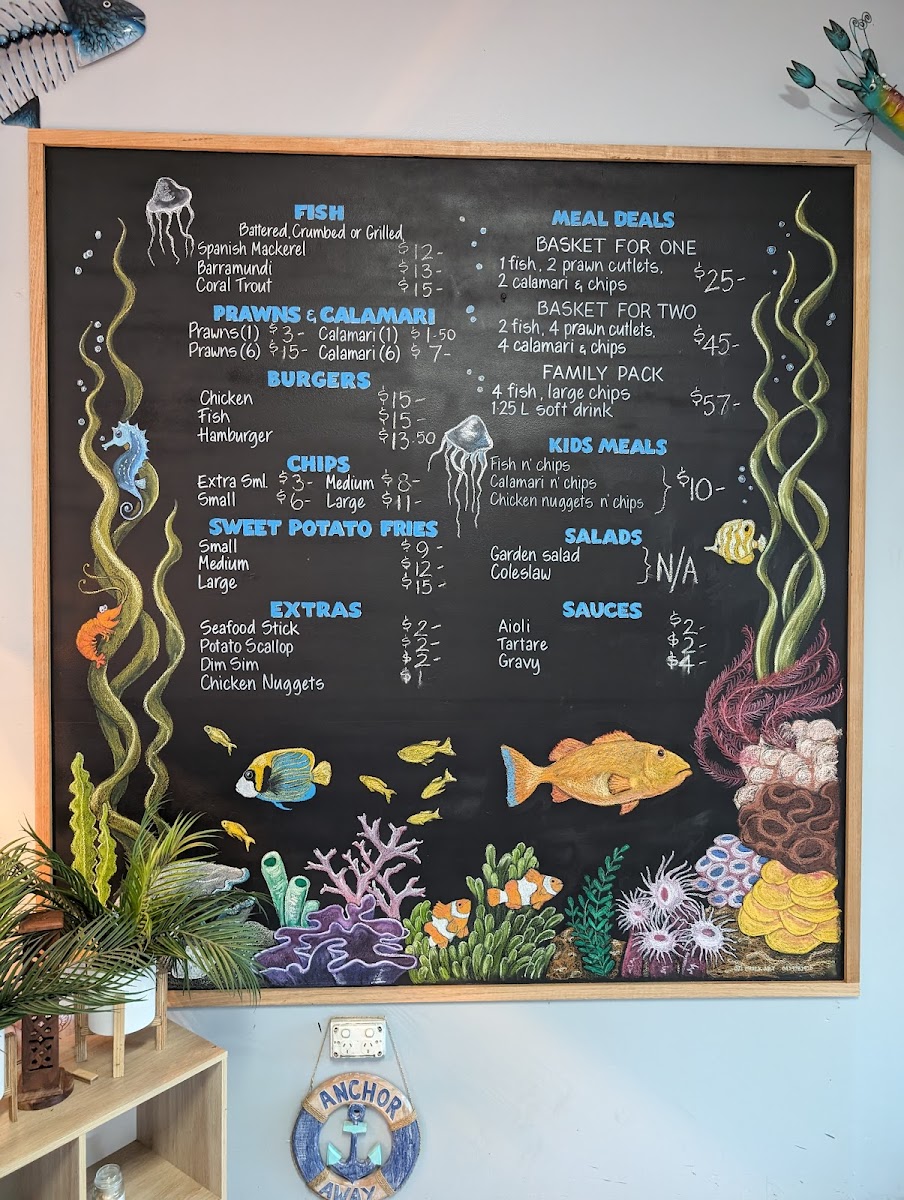 FISH
Battered, Crumbed or Grilled
Spanish Mackerel $12-
Barramundi $13-
Coral Trout $15-
PRAWNS & CALAMARI
Prawns (1) $3- Calamari (1) $1-50
Prawns (6) $15- Calamari (6) $7-
BURGERS
Chicken $15-
Fish $15-
Hamburger $13.50
CHIPS
Extra Sml. $3- Medium $8-
Small $6- Large $11-
SWEET POTATO FRIES
Small $9-
Medium $12-
Large $15-
EXTRAS
Seafood Stick $2-
Potato Scallop $2-
Dim Sim $2-
Chicken Nuggets $1
MEAL DEALS
BASKET FOR ONE
1 fish, 2 prawn cutlets,
2 calamari & chips $25-
BASKET FOR TWO
2 fish, 4 prawn cutlets,
4 calamari & chips $45-
FAMILY PACK
4 fish, large chips
1·25 L soft drink $57-
KIDS MEALS
Fish n' chips
Calamari n' chips $10-
Chicken nuggets n' chips
SALADS
Garden salad
Coleslaw N/A
SAUCES
Aioli $2-
Tartare $2-
Gravy $4-
ANCHOR
AWAY